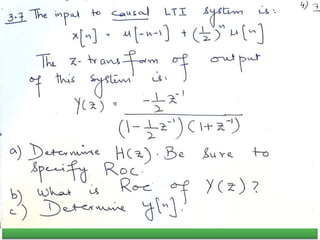 3.7 The input to causal LTI system is:
x[n] = u[-n-1] + (1/2)^n u[n]
The z-transform of output
of this system is:
Y(z) = (-1/2 z^-1) / ((1 - 1/2 z^-1)(1 + z^-1))
a) Determine H(z). Be sure to
specify ROC.
b) What is ROC of Y(z)?
c) Determine y[n].